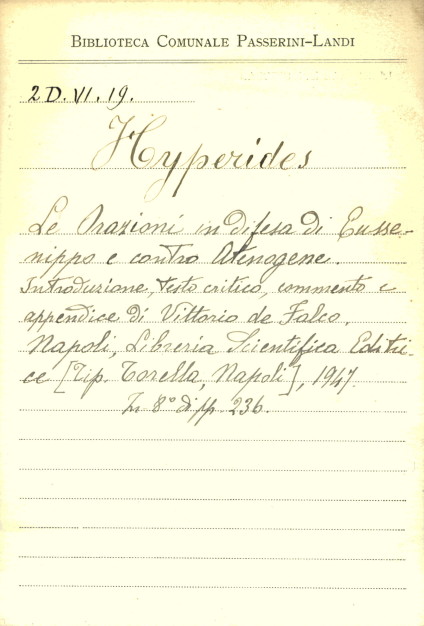 BIBLIOTECA COMUNALE PASSERINI-LANDI
2 D. VI. 19.
Hyperides
Le Orazioni in difesa di Eusse-
nippo e contro Atenogene.
Introduzione, testo critico, commento e
appendice di Vittorio de Falco.
Napoli, Libreria Scientifica Editri-
ce [Tip. Torella, Napoli], 1947.
In 8° di pp. 236.